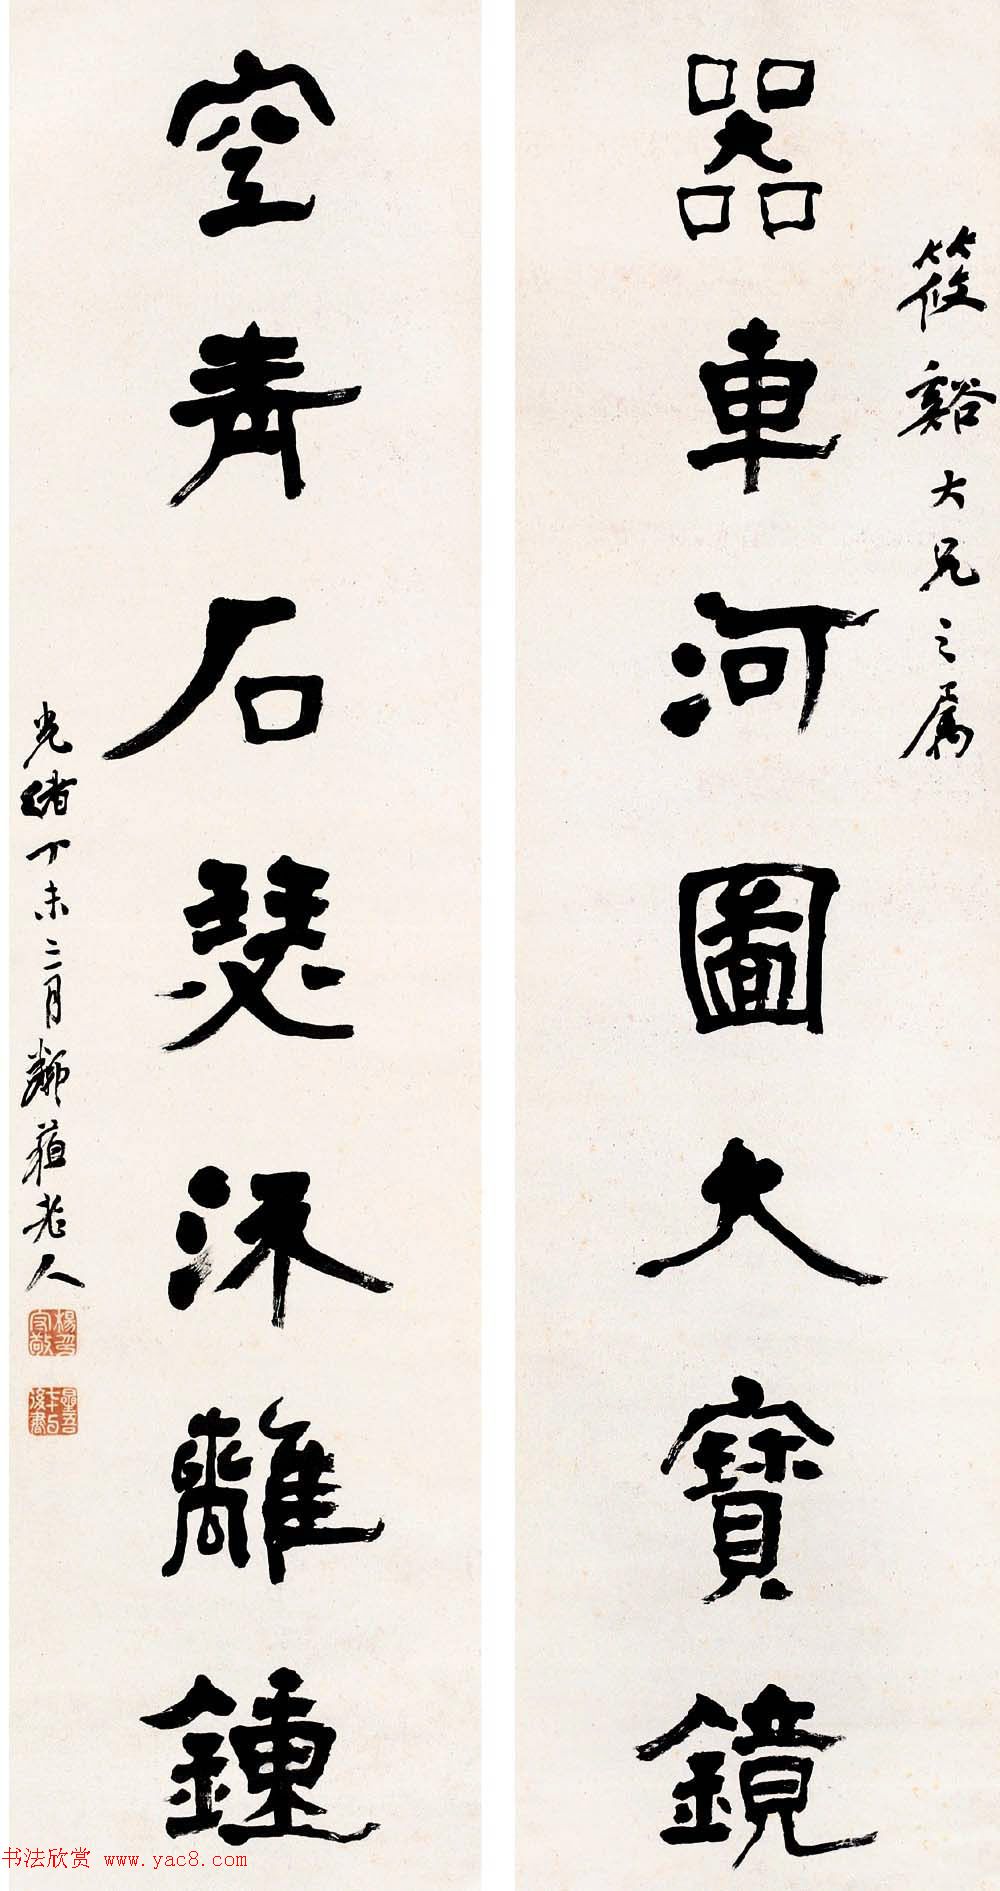 筱谿大兄之屬
器車河圖大寶鏡
空青石瑟離鍾
光緒丁未二月鄰蘇老人
楊守敬印
书法欣赏 www.yac8.com